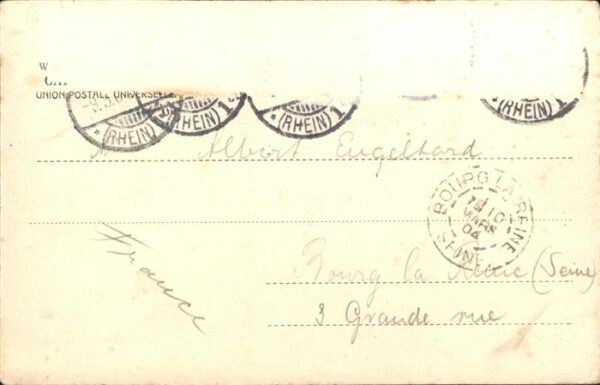 W
UNION POSTALE UNIVERSELLE
(RHEIN) (RHEIN) 1 (RHEIN) 1 (RHEIN) 1
Albert Engelhard
BOURG LA REINE
10
MARS
04
SEINE
France
Bourg la Reine (Seine)
3 Grande rue